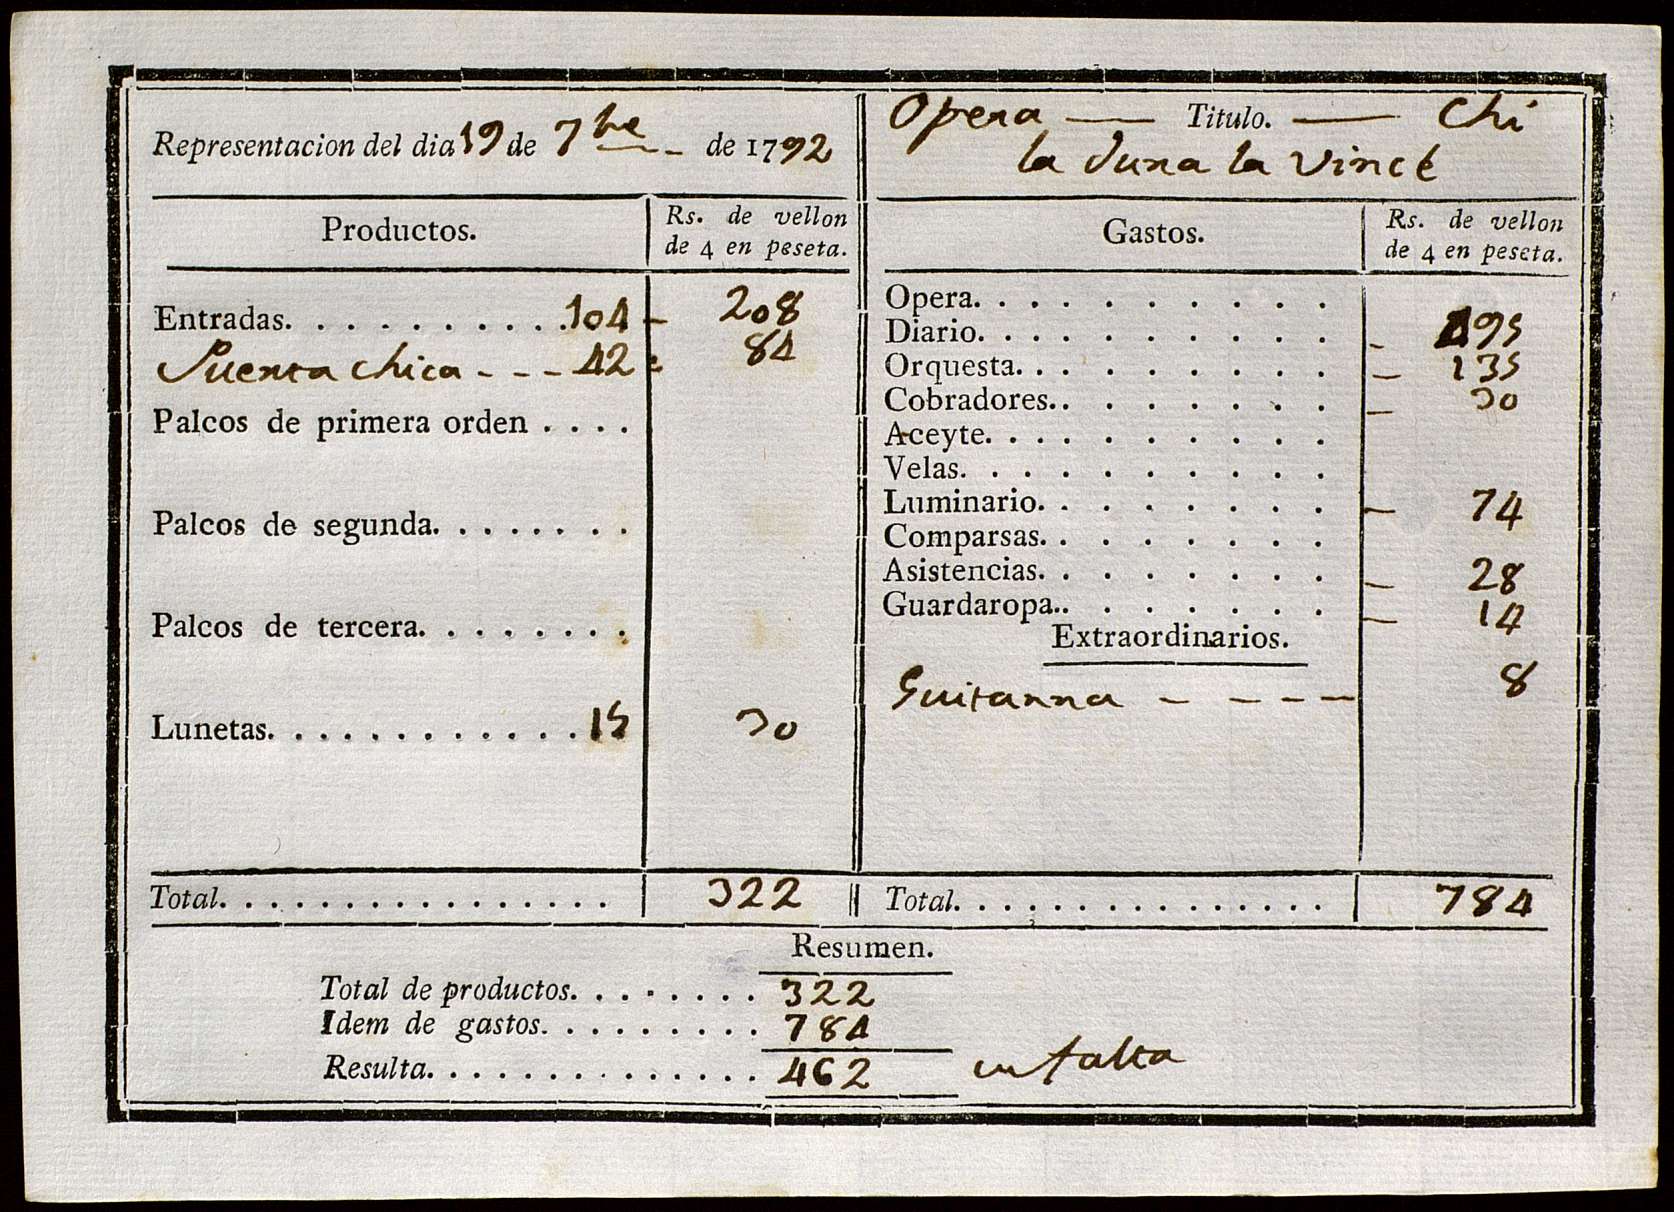 Representacion del dia 19 de 7bre de 1792
Opera Titulo. Chi
la dura la vince
Productos.
Rs. de vellon
de 4 en peseta.
Entradas. 104 208
Puerta chica 42 84
Palcos de primera orden
Palcos de segunda.
Palcos de tercera.
Lunetas. 15 30
Total. 322
Gastos.
Rs. de vellon
de 4 en peseta.
Opera.
Diario. 495
Orquesta. 135
Cobradores. 30
Aceyte.
Velas.
Luminario. 74
Comparsas.
Asistencias. 28
Guardaropa. 14
Extraordinarios.
Guitarra 8
Total. 784
Resumen.
Total de productos. 322
Idem de gastos. 784
Resulta. 462 en falta